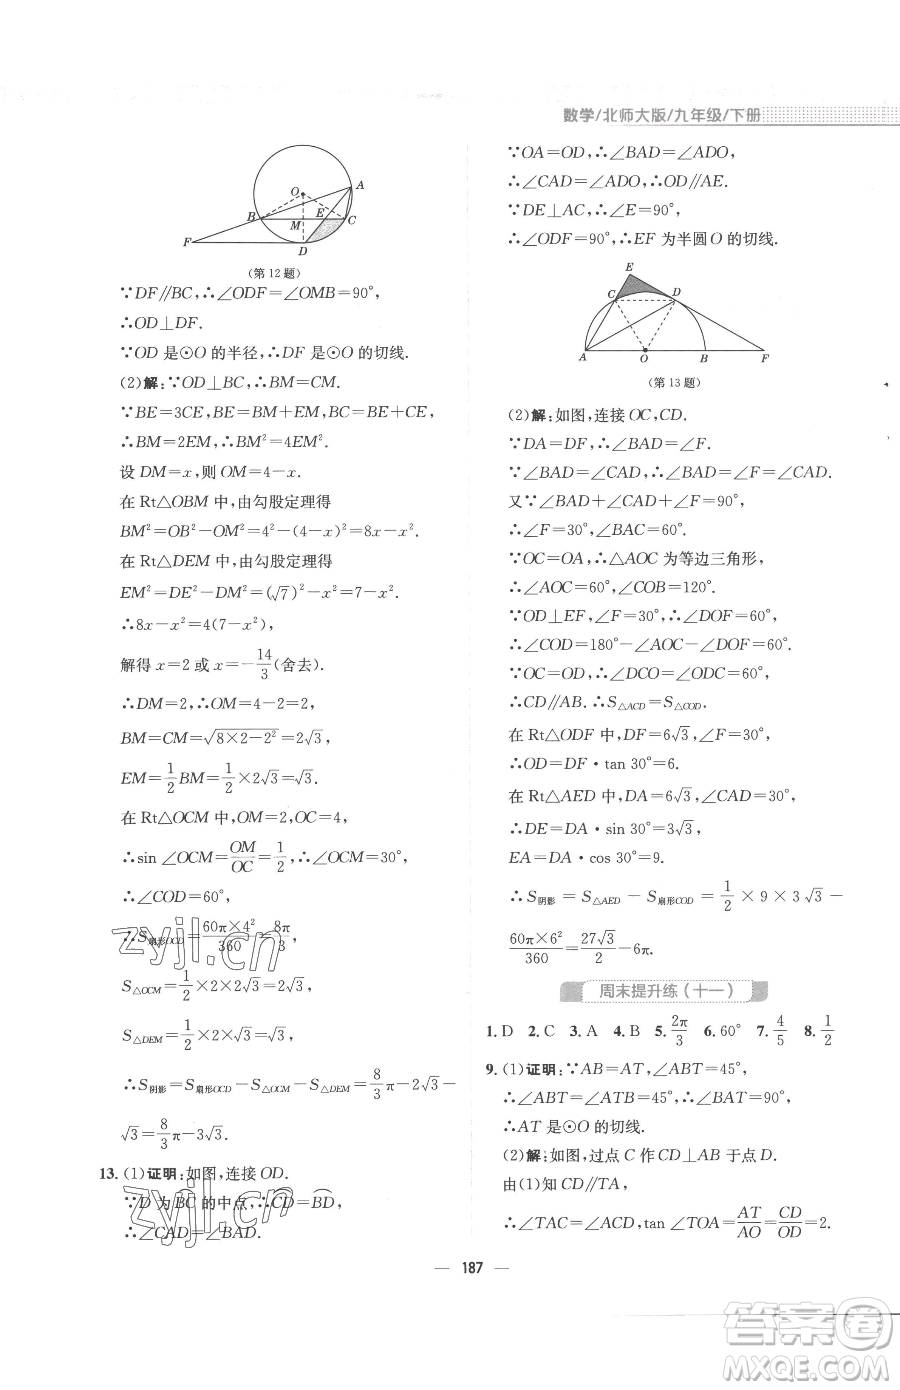 数学/北师大版/九年级/下册
O
A
B
E
M
C
F
D
(第12题)
∵DF∥BC,∴∠ODF=∠OMB=90°,
∴OD⊥DF.
∵OD 是⊙O 的半径,∴DF 是⊙O 的切线.
(2)解:∵OD⊥BC,∴BM=CM.
∵BE=3CE,BE=BM+EM,BC=BE+EC,
∴BM=2EM,∴BM²=4EM².
设 DM=x,则 OM=4-x.
在 Rt△OBM 中,由勾股定理得
BM²=OB²-OM²=4²-(4-x)²=8x-x².
在 Rt△DEM 中,由勾股定理得
EM²=DE²-DM²=(√7)²-x²=7-x².
∴8x-x²=4(7-x²),
解得 x=2 或 x=-14/3(舍去).
∴DM=2,∴OM=4-2=2,
BM=CM=√(8×2-2²)=2√3,
EM=1/2BM=1/2×2√3=√3.
在 Rt△OCM 中,OM=2,OC=4,
∴sin ∠OCM=OM/OC=1/2,∴∠OCM=30°,
∴∠COD=60°,
∴S扇形OCD=60π×4²/360=8π/3,
S△OCM=1/2×2×2√3=2√3,
S△DEM=1/2×2×√3=√3,
∴S阴影=S扇形OCD-S△OCM-S△DEM=8/3π-2√3-
√3=8/3π-3√3.
13.(1)证明:如图,连接 OD.
∵D 为BC的中点,∴CD=BD,
∴∠CAD=∠BAD.
∵OA=OD,∴∠BAD=∠ADO,
∴∠CAD=∠ADO,∴OD∥AE.
∵DE⊥AC,∴∠E=90°,
∴∠ODF=90°,∴EF 为半圆 O 的切线.
E
C
D
A
O
B
F
(第13题)
(2)解:如图,连接 OC,CD.
∵DA=DF,∴∠BAD=∠F.
∵∠BAD=∠CAD,∴∠F=∠BAD=∠CAD.
又∵∠BAD+∠CAD+∠F=90°,
∴∠F=30°,∠BAC=60°.
∵OC=OA,∴△AOC 为等边三角形,
∴∠AOC=60°,∠COB=120°.
∵OD⊥EF,∠F=30°,∴∠DOF=60°,
∴∠COD=180°-∠AOC-∠DOF=60°.
∵OC=OD,∴∠DCO=∠ODC=60°,
∴CD∥AB.∴S△ACD=S△COD.
在 Rt△ODF 中,DF=6√3,∠F=30°,
∴OD=DF·tan 30°=6.
在 Rt△AED 中,DA=6√3,∠CAD=30°,
∴DE=DA·sin 30°=3√3,
EA=DA·cos 30°=9.
∴S阴影=S△AED-S扇形COD=1/2×9×3√3-
60π×6²/360=27√3/2-6π.
周末提升练(十一)
1.D 2.C 3.A 4.B 5.2π/3 6.60° 7.4/5 8.1/2
9.(1)证明:∵AB=AT,∠ABT=45°,
∴∠ABT=∠ATB=45°,∴∠BAT=90°,
∴AT 是⊙O 的切线.
(2)解:如图,过点 C 作 CD⊥AB 于点 D.
由(1)知 CD∥TA,
∴∠TAC=∠ACD,tan ∠TOA=AT/AO=CD/OD=2.
187
zyjl.cn
zyjl.cn
答案圈
MXQE.COM